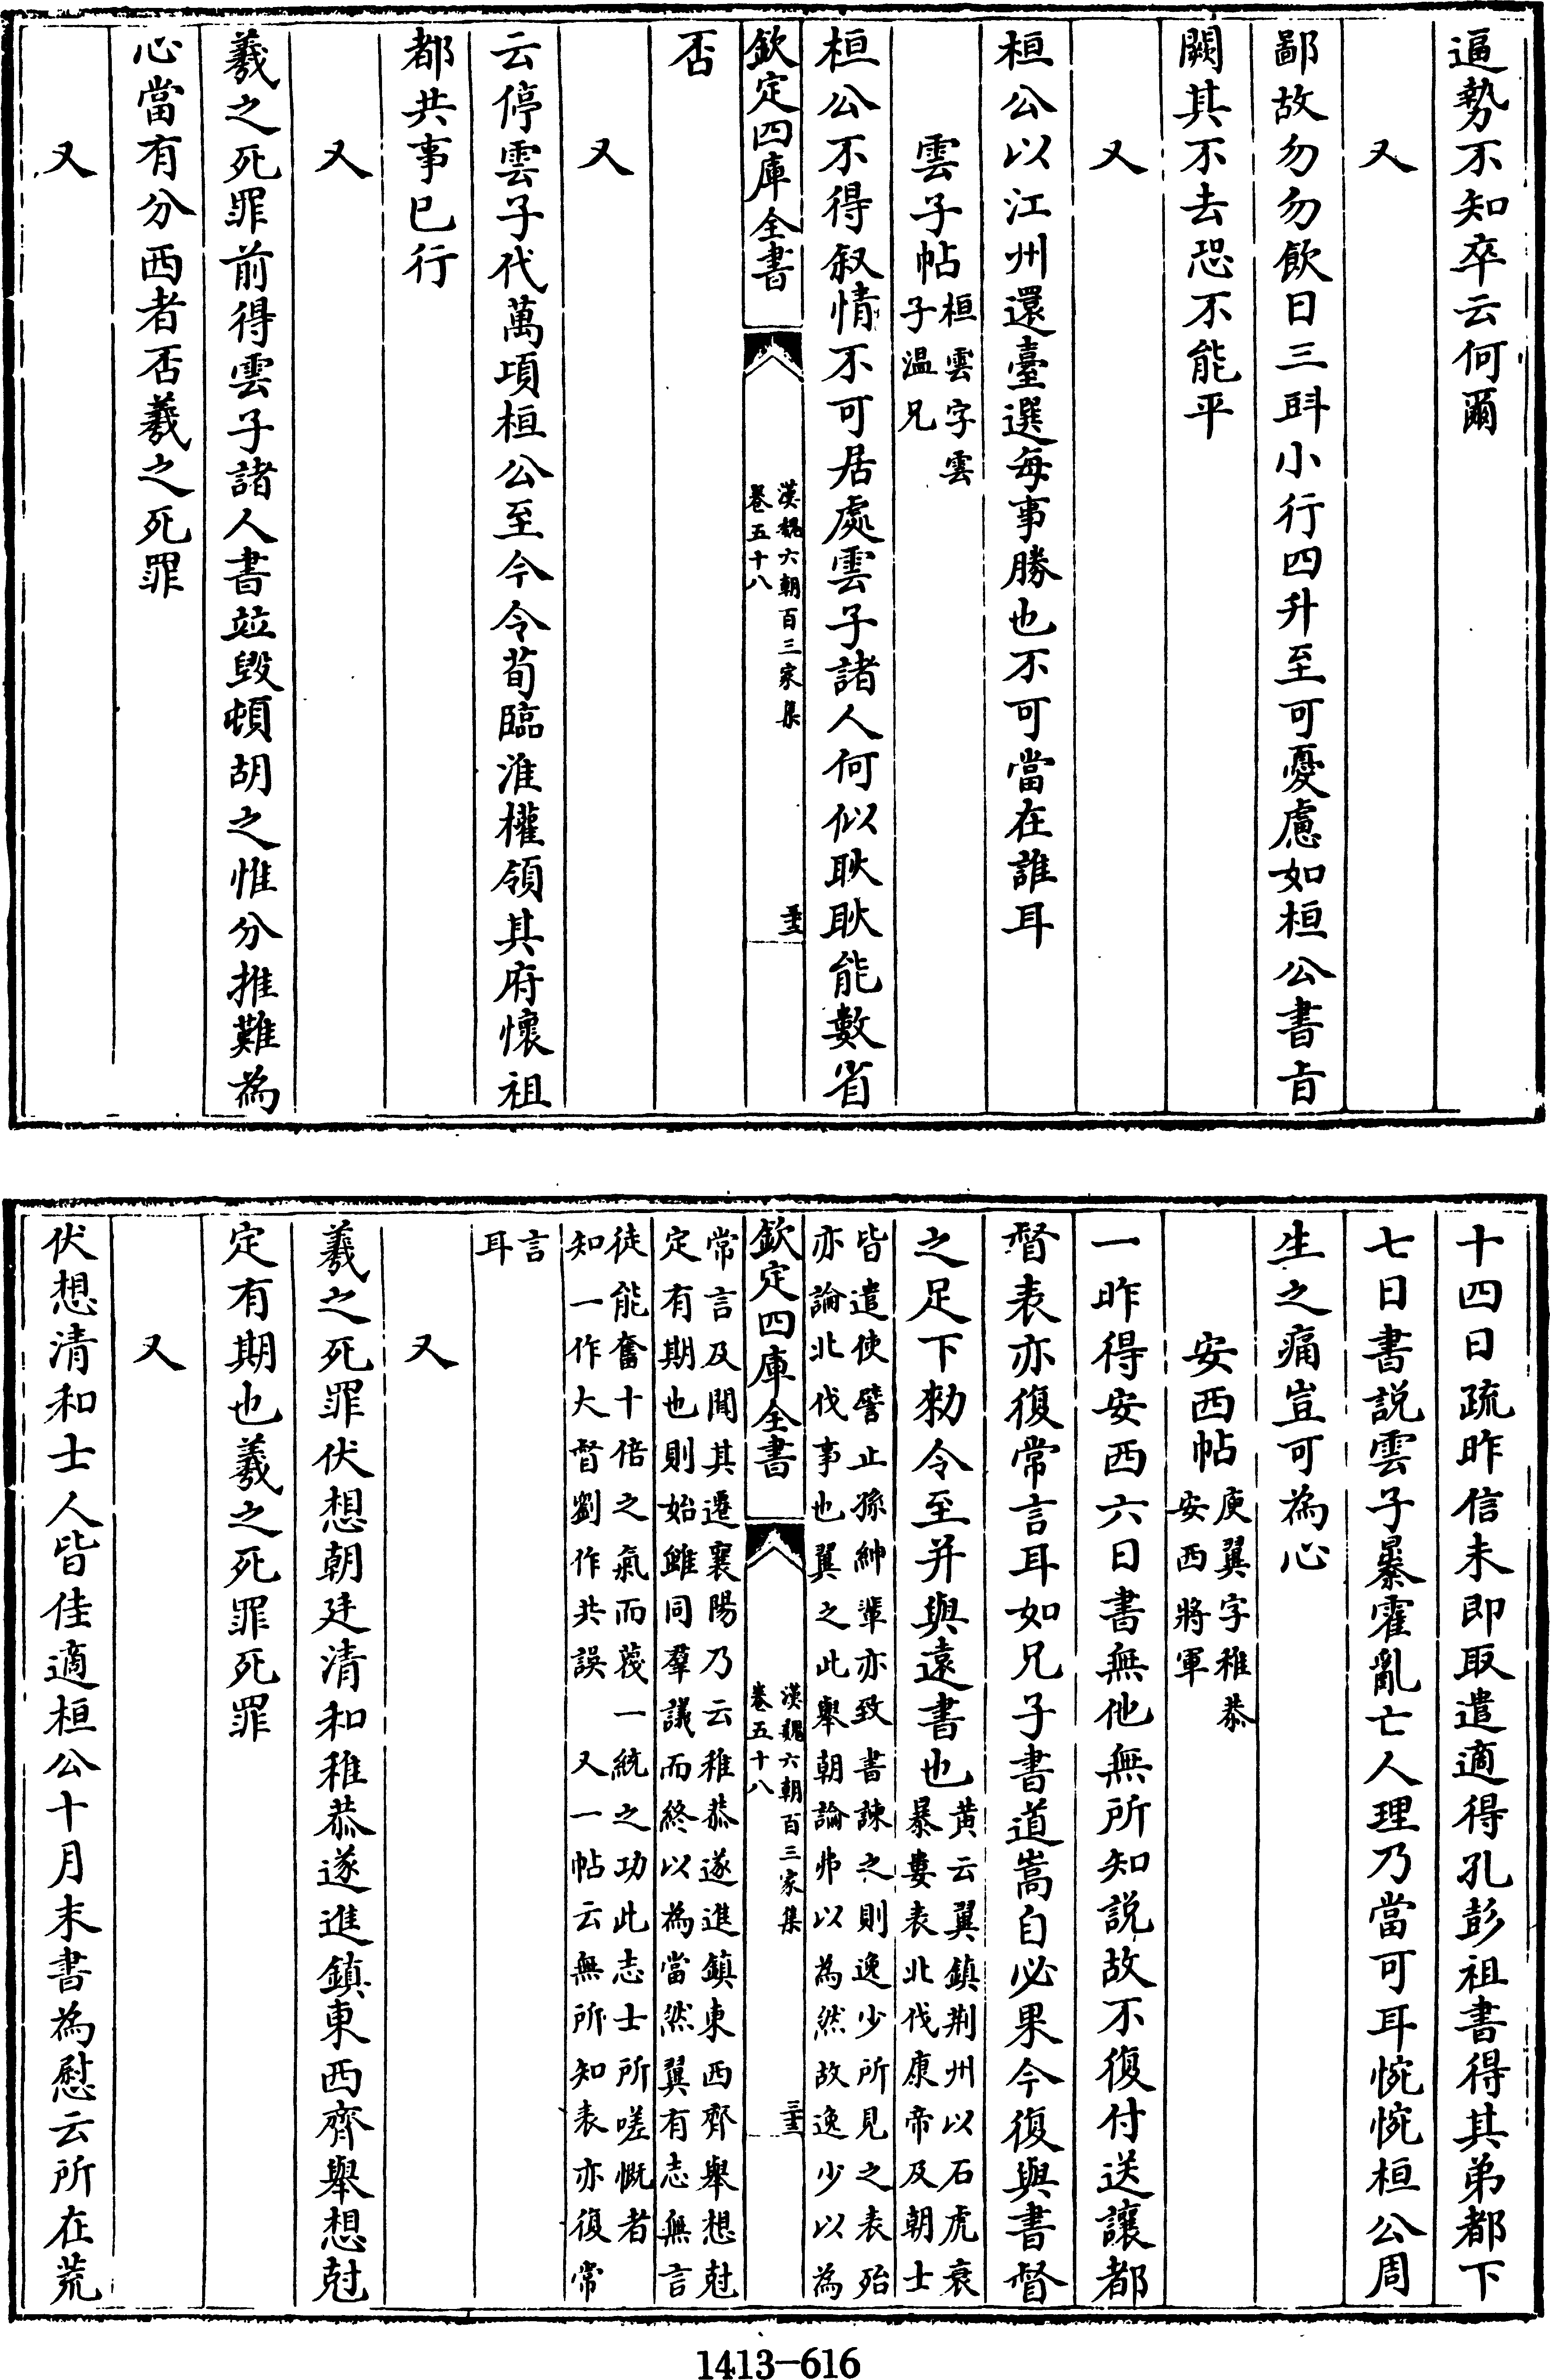 逼勢不知卒云何爾
又
鄙故勿勿飲日三㪷小行四升至可憂慮如桓公書㫖
闕其不去恐不能平
又
桓公以江州還臺選每事勝也不可當在誰耳
雲子帖桓雲字雲
子温兄
桓公不得叙情不可居處雲子諸人何似耿耿能數省
欽定四庫全書
漢魏六朝百三家集
卷五十八
否
又
云停雲子代萬項桓公至今令荀臨淮權領其府懷祖
都共事已行
又
羲之死罪前得雲子諸人書並毁頓胡之惟分推難為
心當有分西者否羲之死罪
又
十四日疏昨信未即取遣適得孔彭祖書得其弟都下
七日書説雲子暴霍亂亡人理乃當可耳惋惋桓公周
生之痛豈可為心
安西帖庾翼字稚恭
安西將軍
一昨得安西六日書無他無所知説故不復付送讓都
督表亦復常言耳如兄子書道嵩自必果今復與書督
之足下勑令至并與遠書也黄云翼鎮荆州以石虎衰
暴婁表北伐康帝及朝士
皆遣使譬止孫紳軰亦致書諫之則逸少所見之表殆
亦論北伐事也翼之此舉朝論弗以為然故逸少以為
欽定四庫全書
漢魏六朝百三家集
卷五十八
常言及聞其遷襄陽乃云稚恭遂進鎮東西齊舉想尅
定有期也則始雖同羣議而終以為當然翼有志無言
徒能奮十倍之氣而蔑一統之功此志士所嗟慨者
知一作大督劉作共誤 又一帖云無所知表亦復常
言
耳
又
羲之死罪伏想朝廷清和稚恭遂進鎮東西齊舉想尅
定有期也羲之死罪死罪
又
伏想清和士人皆佳適桓公十月末書為慰云所在荒
1413-616